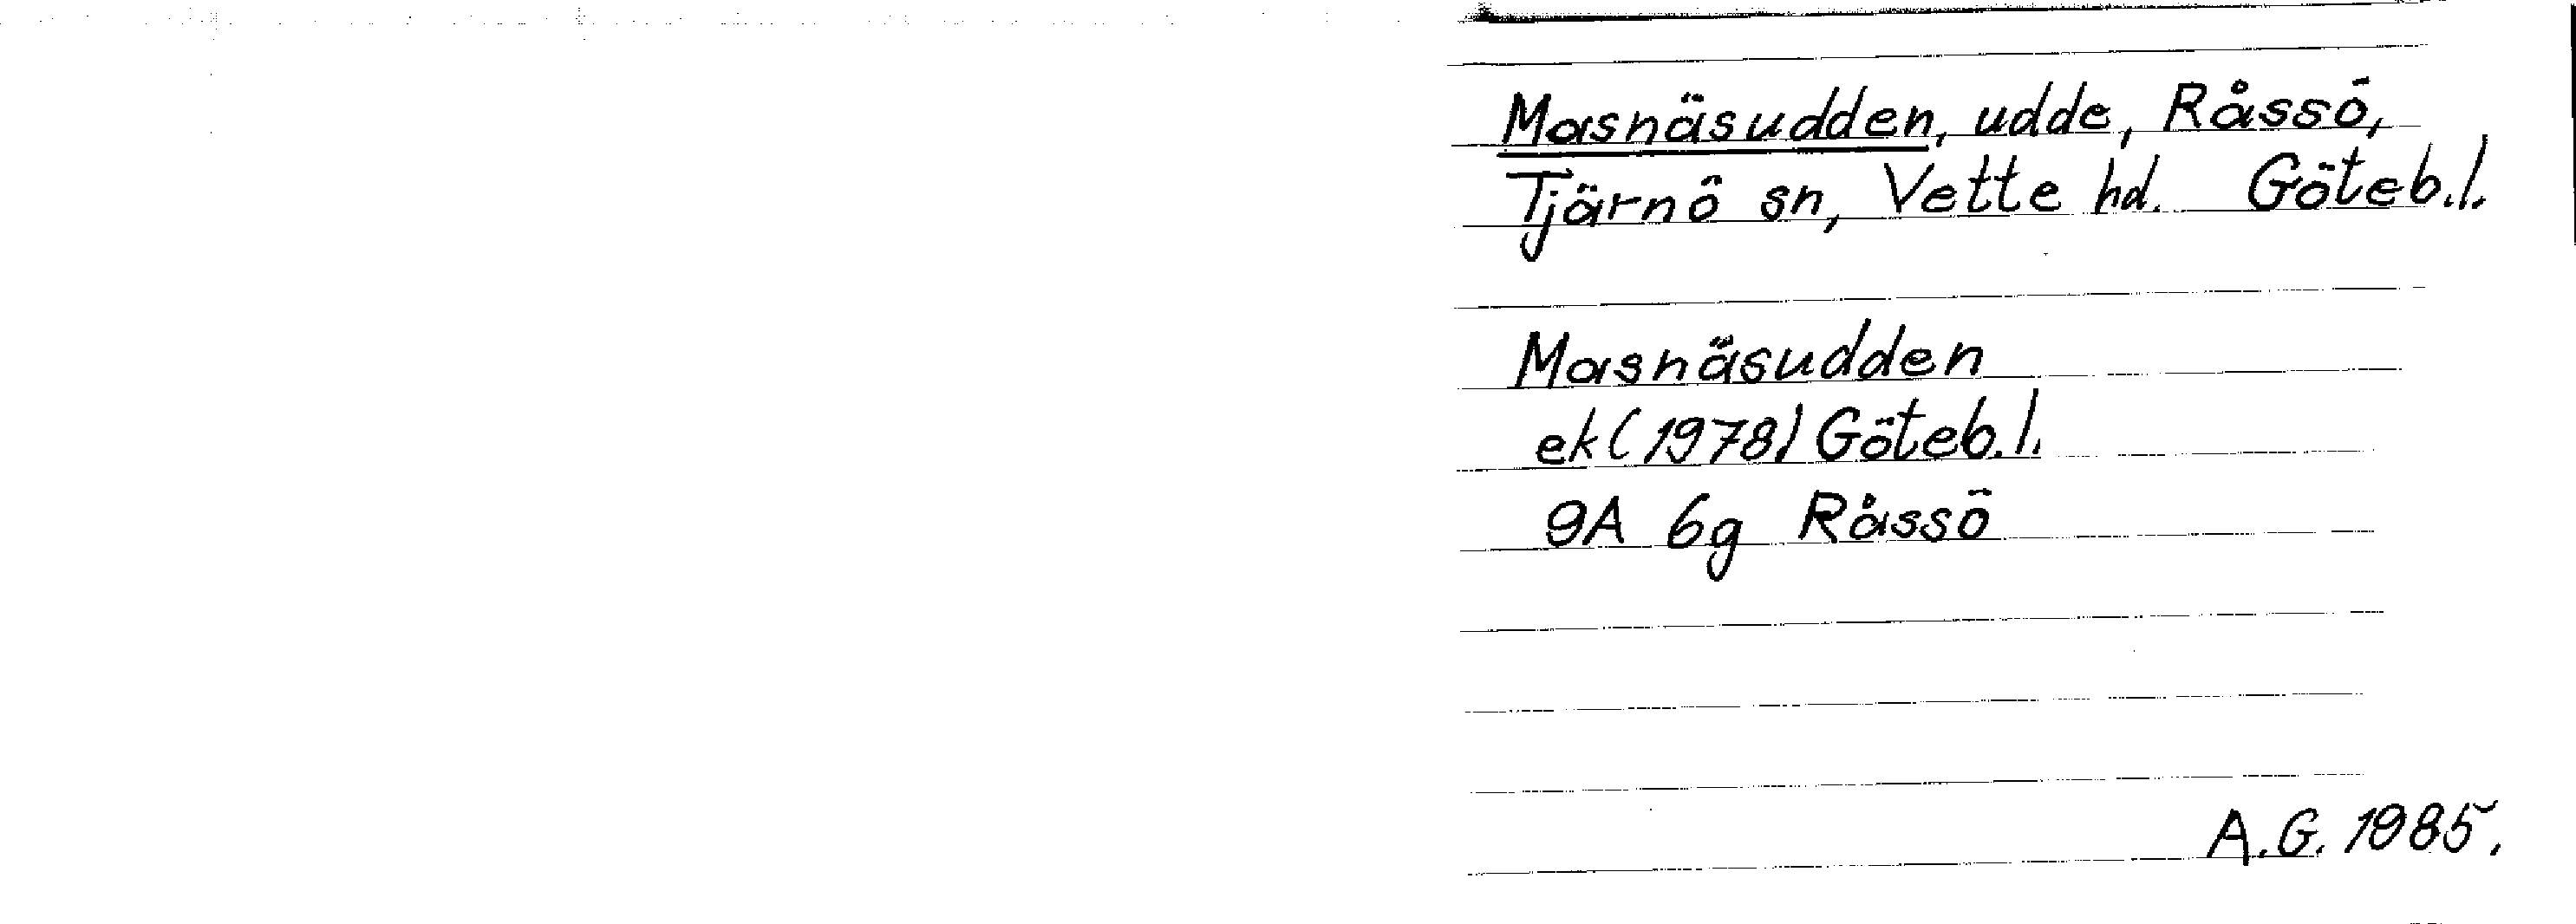 Masnäsudden, udde, Råssö,
Tjärnö sn, Vette hd. Göteb.l.
Masnäsudden
ek (1978) Göteb.l.
9A 6g Råssö
A.G. 1985.